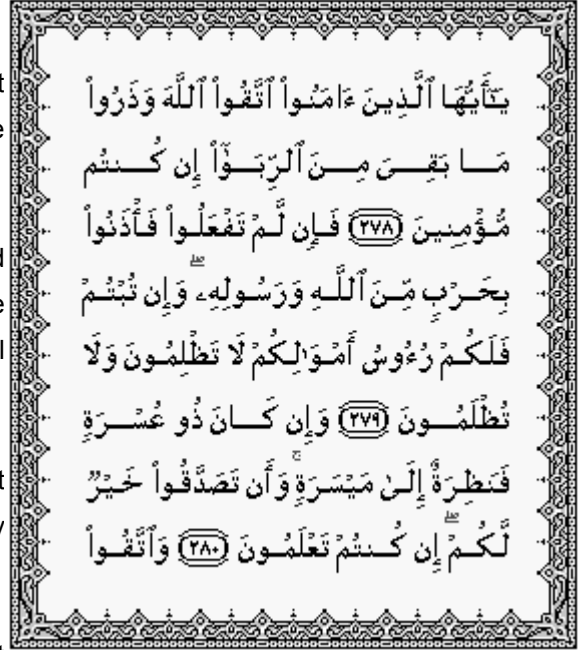 يَٰٓأَيُّهَا ٱلَّذِينَ ءَامَنُوا۟ ٱتَّقُوا۟ ٱللَّهَ وَذَرُوا۟
مَا بَقِىَ مِنَ ٱلرِّبَوٰٓا۟ إِن كُنتُم
مُّؤْمِنِينَ ﴿٢٧٨﴾ فَإِن لَّمْ تَفْعَلُوا۟ فَأْذَنُوا۟
بِحَرْبٍ مِّنَ ٱللَّهِ وَرَسُولِهِۦ ۖ وَإِن تُبْتُمْ
فَلَكُمْ رُءُوسُ أَمْوَٰلِكُمْ لَا تَظْلِمُونَ وَلَا
تُظْلَمُونَ ﴿٢٧٩﴾ وَإِن كَانَ ذُو عُسْرَةٍ
فَنَظِرَةٌ إِلَىٰ مَيْسَرَةٍ ۚ وَأَن تَصَدَّقُوا۟ خَيْرٌ
لَّكُمْ ۖ إِن كُنتُمْ تَعْلَمُونَ ﴿٢٨٠﴾ وَٱتَّقُوا۟